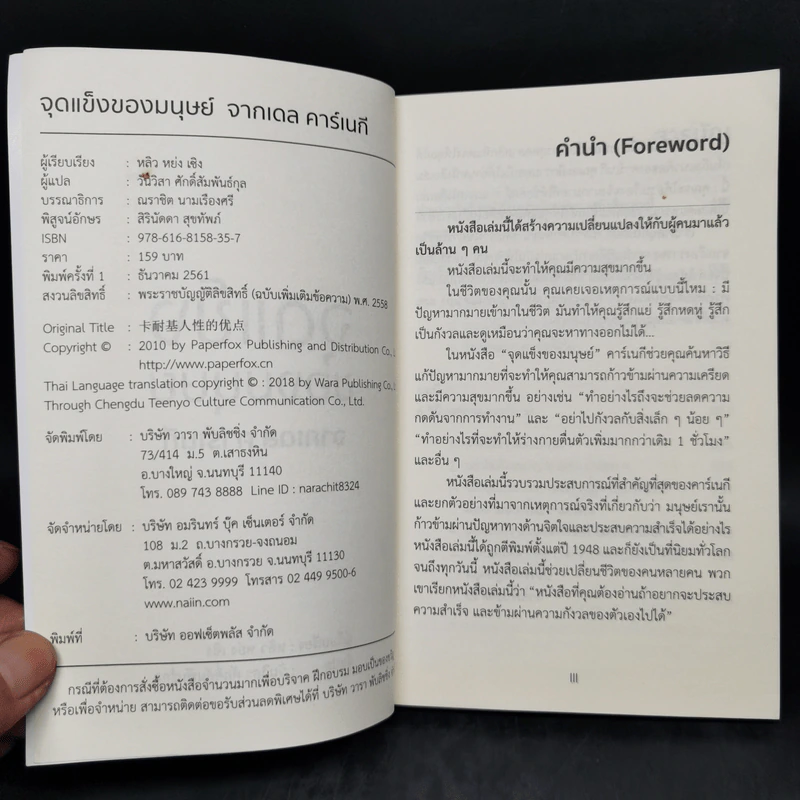 จุดแข็งของมนุษย์ จากเดล คาร์เนกี
ผู้เรียบเรียง : หลิว หย่ง เซิง
ผู้แปล : วันวิสา ศักดิ์สัมพันธ์กุล
บรรณาธิการ : ณราชิต นามเรืองศรี
พิสูจน์อักษร : สิรินัดดา สุขทัพภ์
ISBN : 978-616-8158-35-7
ราคา : 159 บาท
พิมพ์ครั้งที่ 1 : ธันวาคม 2561
สงวนลิขสิทธิ์ : พระราชบัญญัติลิขสิทธิ์ (ฉบับเพิ่มเติมข้อความ) พ.ศ. 2558
Original Title : 卡耐基人性的优点
Copyright © : 2010 by Paperfox Publishing and Distribution Co.,
http://www.paperfox.cn
Thai Language translation copyright © : 2018 by Wara Publishing Co.,
Through Chengdu Teenyo Culture Communication Co., Ltd.
จัดพิมพ์โดย : บริษัท วารา พับลิชชิ่ง จำกัด
73/414 ม.5 ต.เสาธงหิน
อ.บางใหญ่ จ.นนทบุรี 11140
โทร. 089 743 8888 Line ID : narachit8324
จัดจำหน่ายโดย : บริษัท อมรินทร์ บุ๊ค เซ็นเตอร์ จำกัด
108 ม.2 ถ.บางกรวย-จงถนอม
ต.มหาสวัสดิ์ อ.บางกรวย จ.นนทบุรี 11130
โทร. 02 423 9999 โทรสาร 02 449 9500-6
www.naiin.com
พิมพ์ที่ : บริษัท ออฟเซ็ตพลัส จำกัด
กรณีที่ต้องการสั่งซื้อหนังสือจำนวนมากเพื่อบริจาค ฝึกอบรม มอบเป็นของขวัญ
หรือเพื่อจำหน่าย สามารถติดต่อขอรับส่วนลดพิเศษได้ที่ บริษัท วารา พับลิชชิ่ง
คำนำ (Foreword)
หนังสือเล่มนี้ได้สร้างความเปลี่ยนแปลงให้กับผู้คนมาแล้ว
เป็นล้าน ๆ คน
หนังสือเล่มนี้จะทำให้คุณมีความสุขมากขึ้น
ในชีวิตของคุณนั้น คุณเคยเจอเหตุการณ์แบบนี้ไหม : มี
ปัญหามากมายเข้ามาในชีวิต มันทำให้คุณรู้สึกแย่ รู้สึกหดหู่ รู้สึก
เป็นกังวลและดูเหมือนว่าคุณจะหาทางออกไม่ได้...
ในหนังสือ “จุดแข็งของมนุษย์” คาร์เนกีช่วยคุณค้นหาวิธี
แก้ปัญหามากมายที่จะทำให้คุณสามารถก้าวข้ามผ่านความเครียด
และมีความสุขมากขึ้น อย่างเช่น “ทำอย่างไรถึงจะช่วยลดความ
กดดันจากการทำงาน” และ “อย่าไปกังวลกับสิ่งเล็ก ๆ น้อย ๆ”
“ทำอย่างไรที่จะทำให้ร่างกายตื่นตัวเพิ่มมากกว่าเดิม 1 ชั่วโมง”
และอื่น ๆ
หนังสือเล่มนี้รวบรวมประสบการณ์ที่สำคัญที่สุดของคาร์เนกี
และยกตัวอย่างที่มาจากเหตุการณ์จริงที่เกี่ยวกับว่า มนุษย์เรานั้น
ก้าวข้ามผ่านปัญหาทางด้านจิตใจและประสบความสำเร็จได้อย่างไร
หนังสือเล่มนี้ได้ถูกตีพิมพ์ตั้งแต่ปี 1948 และก็ยังเป็นที่นิยมทั่วโลก
จนถึงทุกวันนี้ หนังสือเล่มนี้ช่วยเปลี่ยนชีวิตของคนหลายคน พวก
เขาเรียกหนังสือเล่มนี้ว่า “หนังสือที่คุณต้องอ่านถ้าอยากจะประสบ
ความสำเร็จ และข้ามผ่านความกังวลของตัวเองไปได้”
III